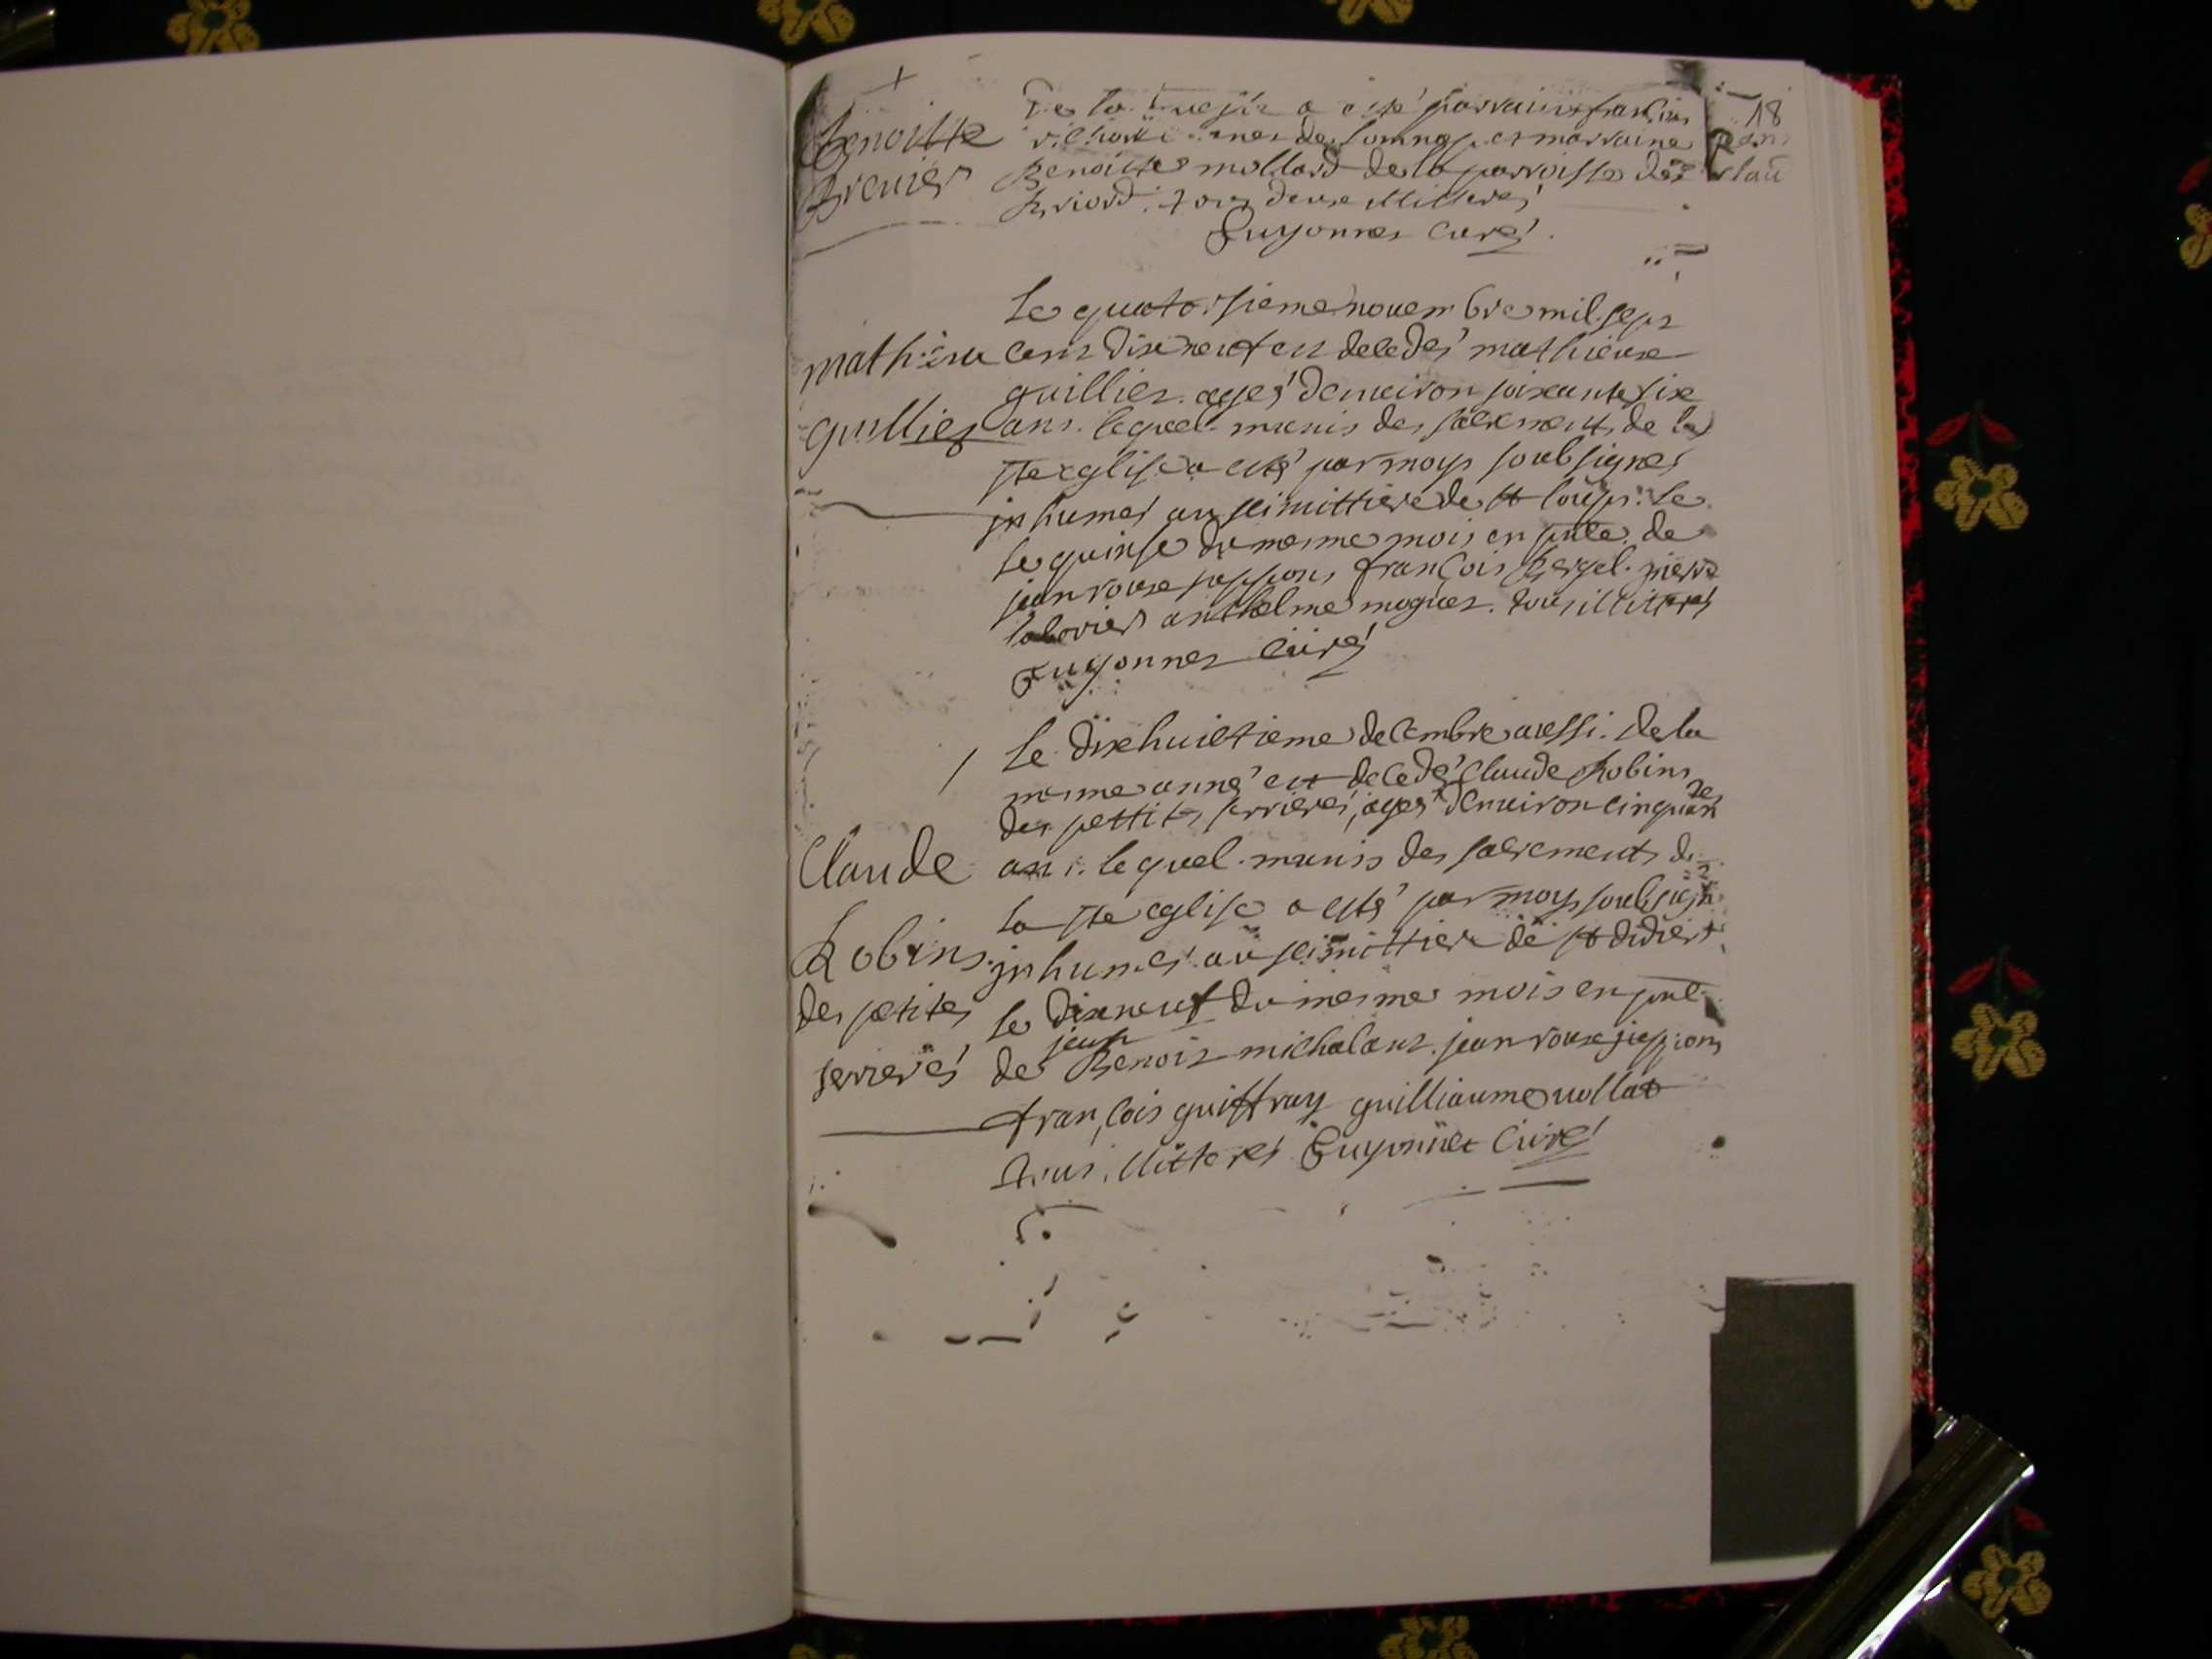 18
Benoitte
Brenier
a esté parrain
de et marraine
Benoitte mollard de la parroisse de
Briord. tous deux illiteres
Guyonnet Curé
Mathieu
guillier
Le quatorsieme novembre mil sept
cent dixneuf est decedé mathieux
guillier. agés denviron soixante six
ans. lequel munis des sacrements de la
ste eglise a esté par moy soubsignes
inhumes au seimittiere de st loups. le
le quinse du mesme mois en pnce. de
jean roux françois Bergel. pierre
anthelme moguet. tous illitteres
Guyonnet Curé
Claude
Robins
des petites
serrieres
Le dixhuictieme decembre aussi. de la
mesme anné est decedé Claude Robins
des pettites serrieres, ages denviron cinquante
ans. lequel munis des sacrements de
la ste eglise a esté par moy soubsign
inhumes au seimittiere de st didier
le dixneuf du mesme mois en pnce
de jean Benoit michaland. jean roux
françois guiffray guilliaume vollat
tous illitteres Guyonnet Curé